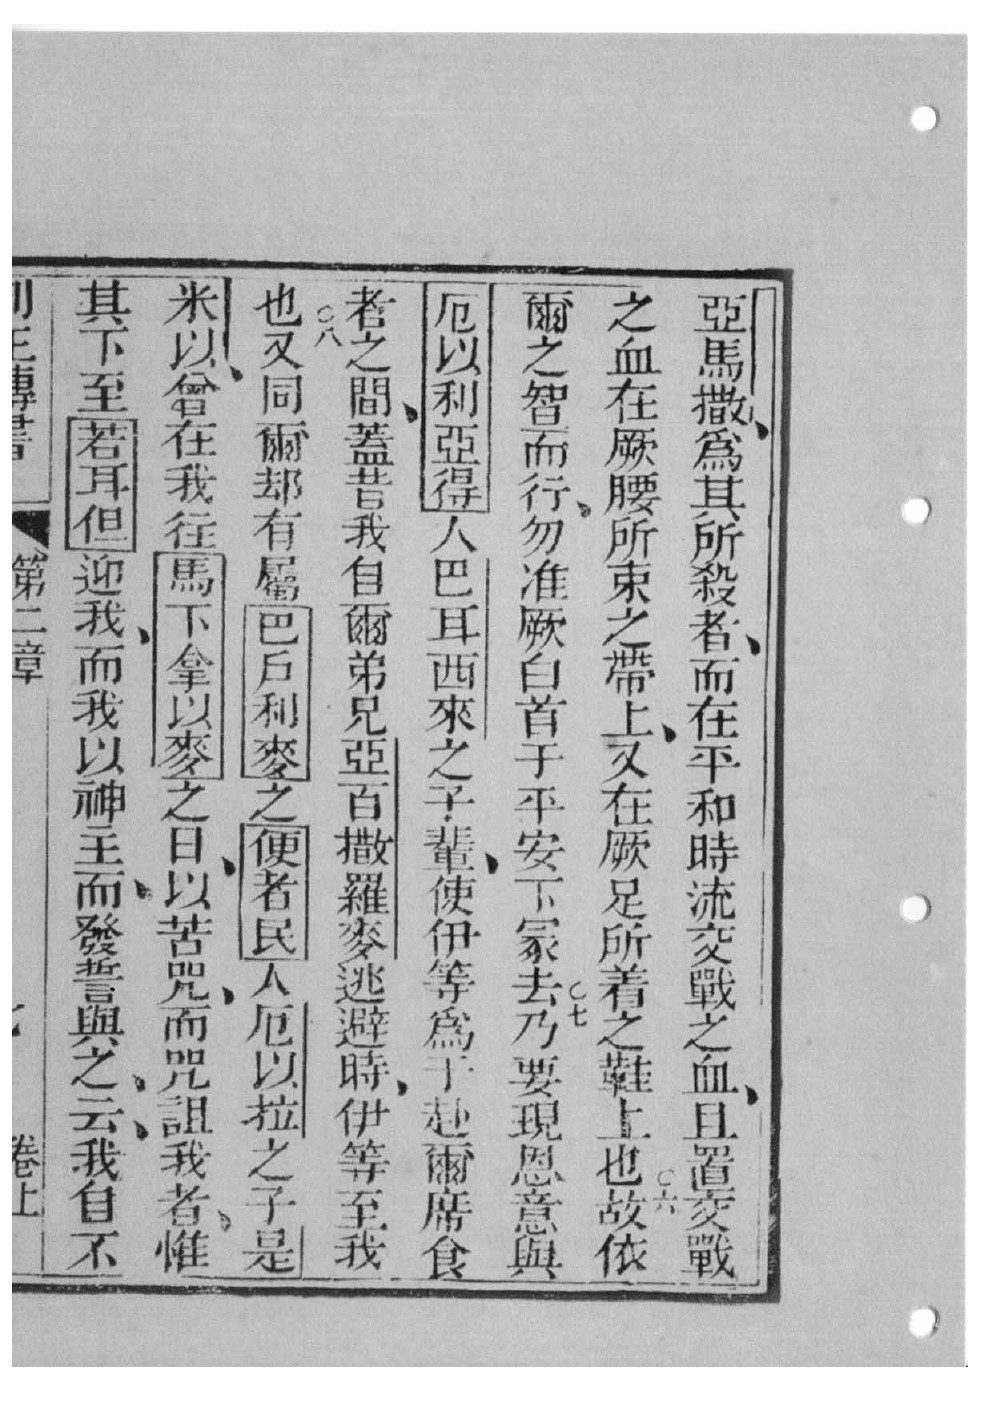 亞馬撒、爲其所殺者、而在平和時流交戰之血、且置交戰
之血在厥腰所束之帶上、又在厥足所着之鞋上也○六故依
爾之智而行、勿准厥白首于平安下冡去○七乃要現恩意與
厄以利亞得人巴耳西來之子輩、使伊等爲于赴爾席食
者之間、蓋昔我自爾弟兄亞百撒羅麥逃避時、伊等至我
也○八又同爾却有屬巴戶利麥之便者民人厄以拉之子是
米以、曾在我往馬下拿以麥之日、以苦咒、而咒詛我者、惟
其下至若耳但迎我、而我以神主、而發誓與之、云、我自不
列王傳書 第二章 卷上